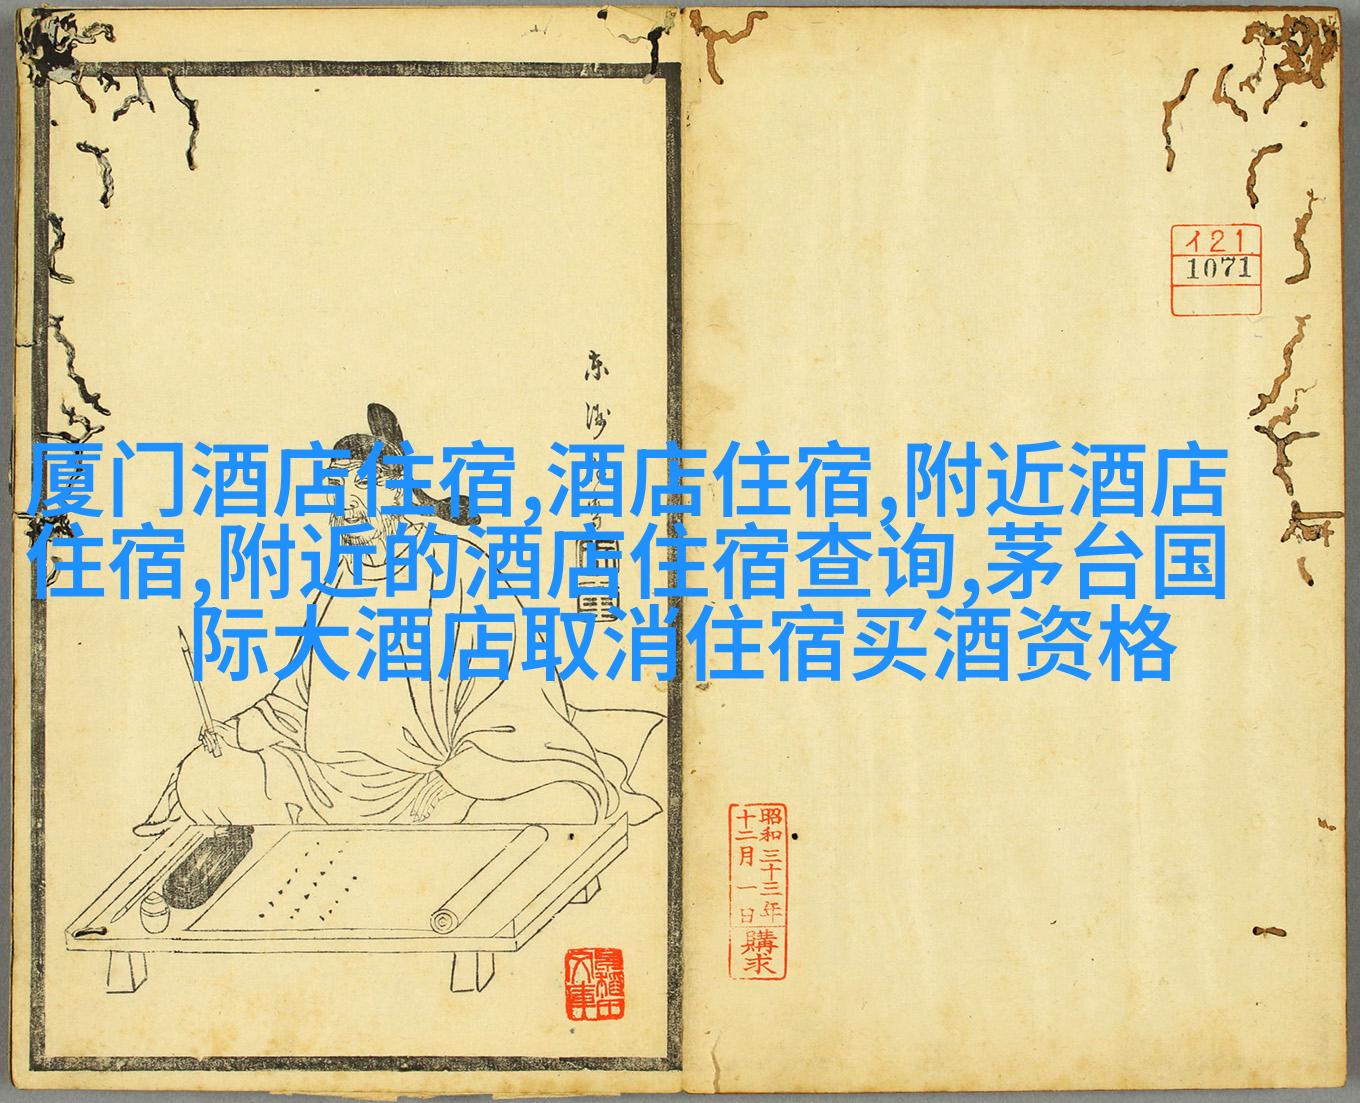 イ21
1071
东
厦门酒店住宿,酒店住宿,附近酒店
住宿,附近的酒店住宿查询,茅台国
际大酒店取消住宿买酒资格
昭和三十三年
十二月一日
購求